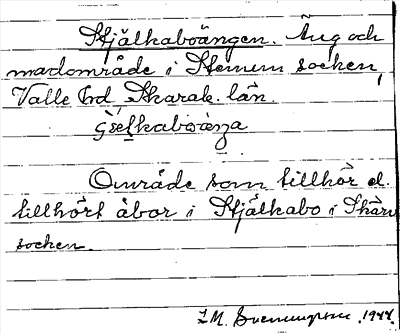 Stjälkaboängen. Äng och
madområde i Stenum socken,
Valle hd Skarab. län.
Område som tillhör el.
tillhört åbor i Stjälkabo i Skärv
socken.
1944.